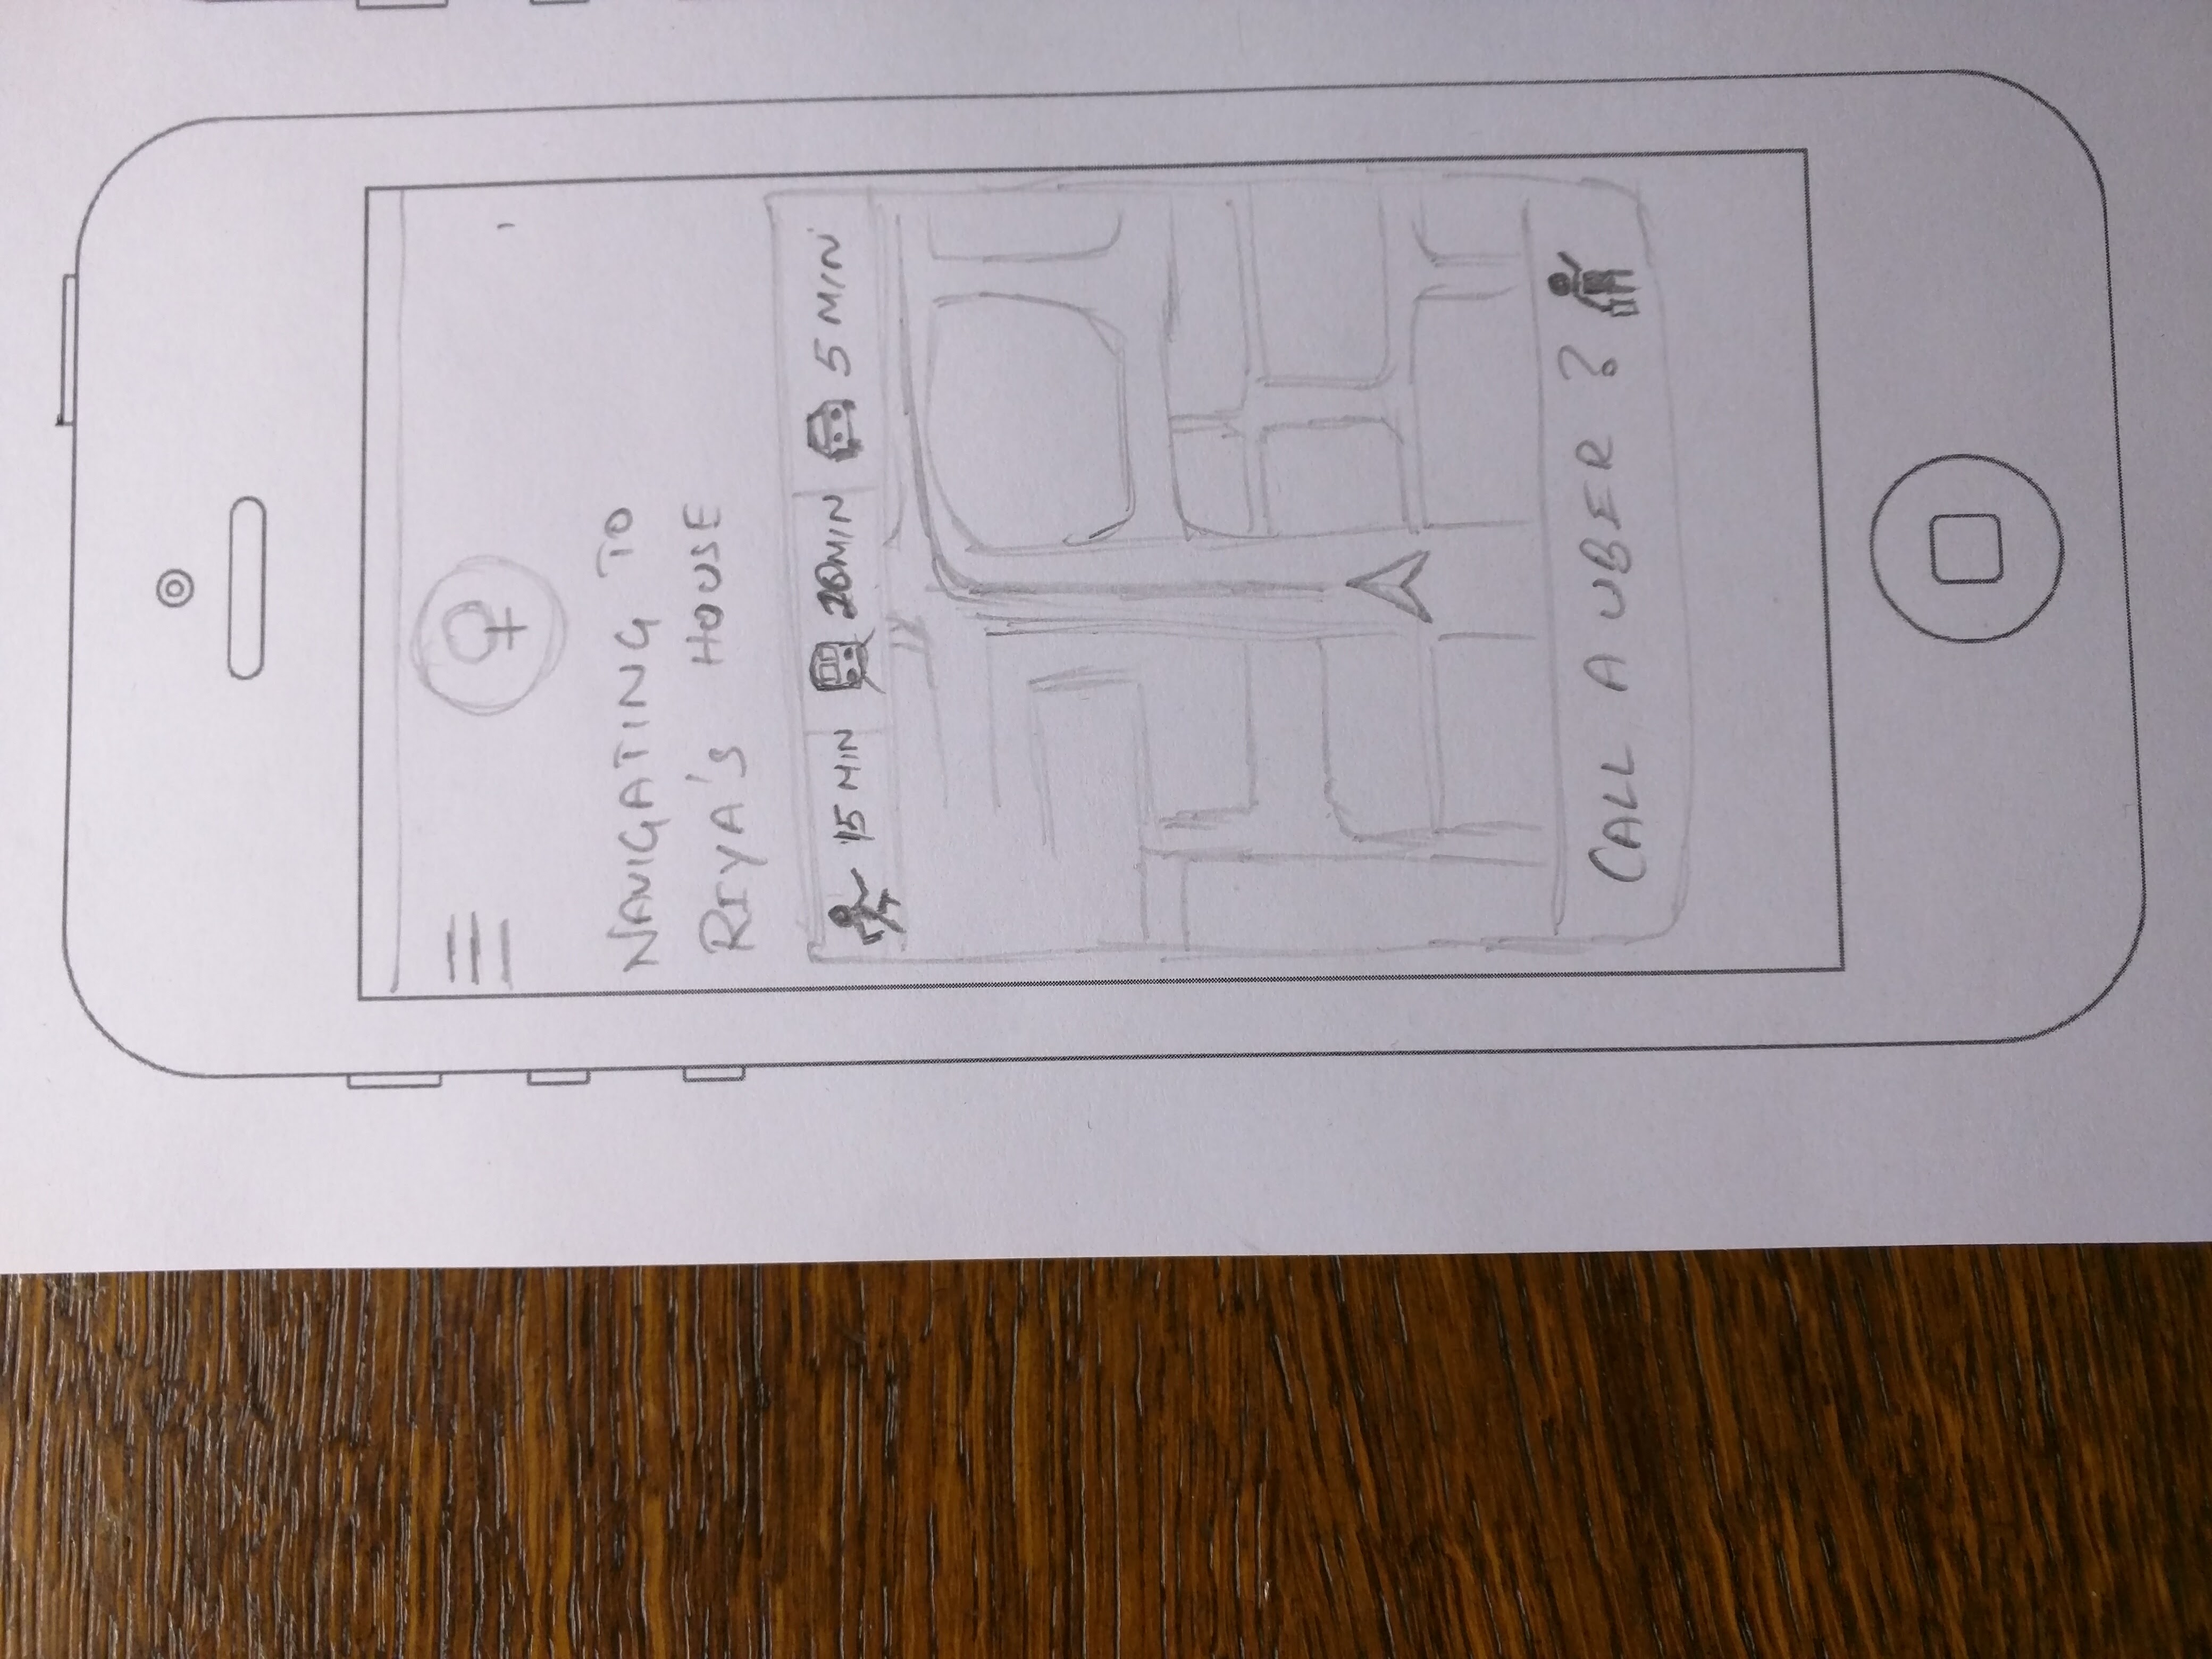 NAVIGATING TO
RIYA'S HOUSE
15 MIN 20MIN 5 MIN
CALL A UBER ?